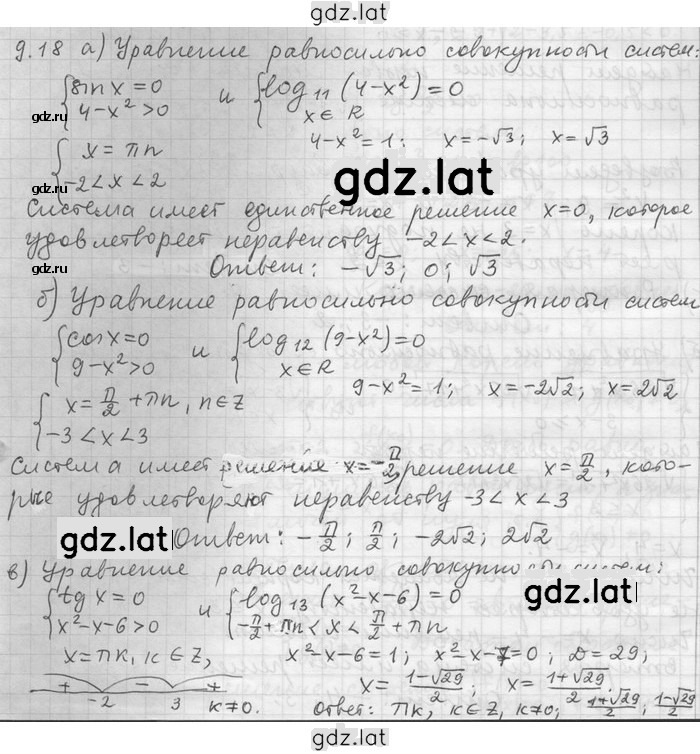 gdz.lat
9.18 а) Уравнение равносильно совокупности систем:
{ sin x = 0 и { log₁₁ (4-x²) = 0
{ 4-x² > 0 { x ∈ R
gdz.ru
4-x² = 1; x = -√3; x = √3
{ x = πn
{ -2 < x < 2
gdz.ru
gdz.lat
Система имеет единственное решение x=0, которое
удовлетворяет неравенству -2 < x < 2.
Ответ: -√3; 0; √3
б) Уравнение равносильно совокупности систем
{ cos x = 0 и { log₁₂ (9-x²) = 0
{ 9-x² > 0 { x ∈ R
gdz.ru
9-x² = 1; x = -2√2; x = 2√2
{ x = π/2 + πn, n ∈ Z
{ -3 < x < 3
Система имеет решение x = -π/2, решение x = π/2, кото-
рые удовлетворяют неравенству -3 < x < 3
gdz.lat Ответ: -π/2; π/2; -2√2; 2√2
в) Уравнение равносильно совокупности систем:
gdz.lat
{ tg x = 0 и { log₁₃ (x²-x-6) = 0
{ x²-x-6 > 0 { -π/2 + πn < x < π/2 + πn
x = πk, k ∈ Z, x²-x-6 = 1; x²-x-7 = 0; D = 29;
+ - +
-2 3
x = (1-√29)/2; x = (1+√29)/2.
k ≠ 0. Ответ: πk, k ∈ Z, k ≠ 0; (1+√29)/2; (1-√29)/2
gdz.lat